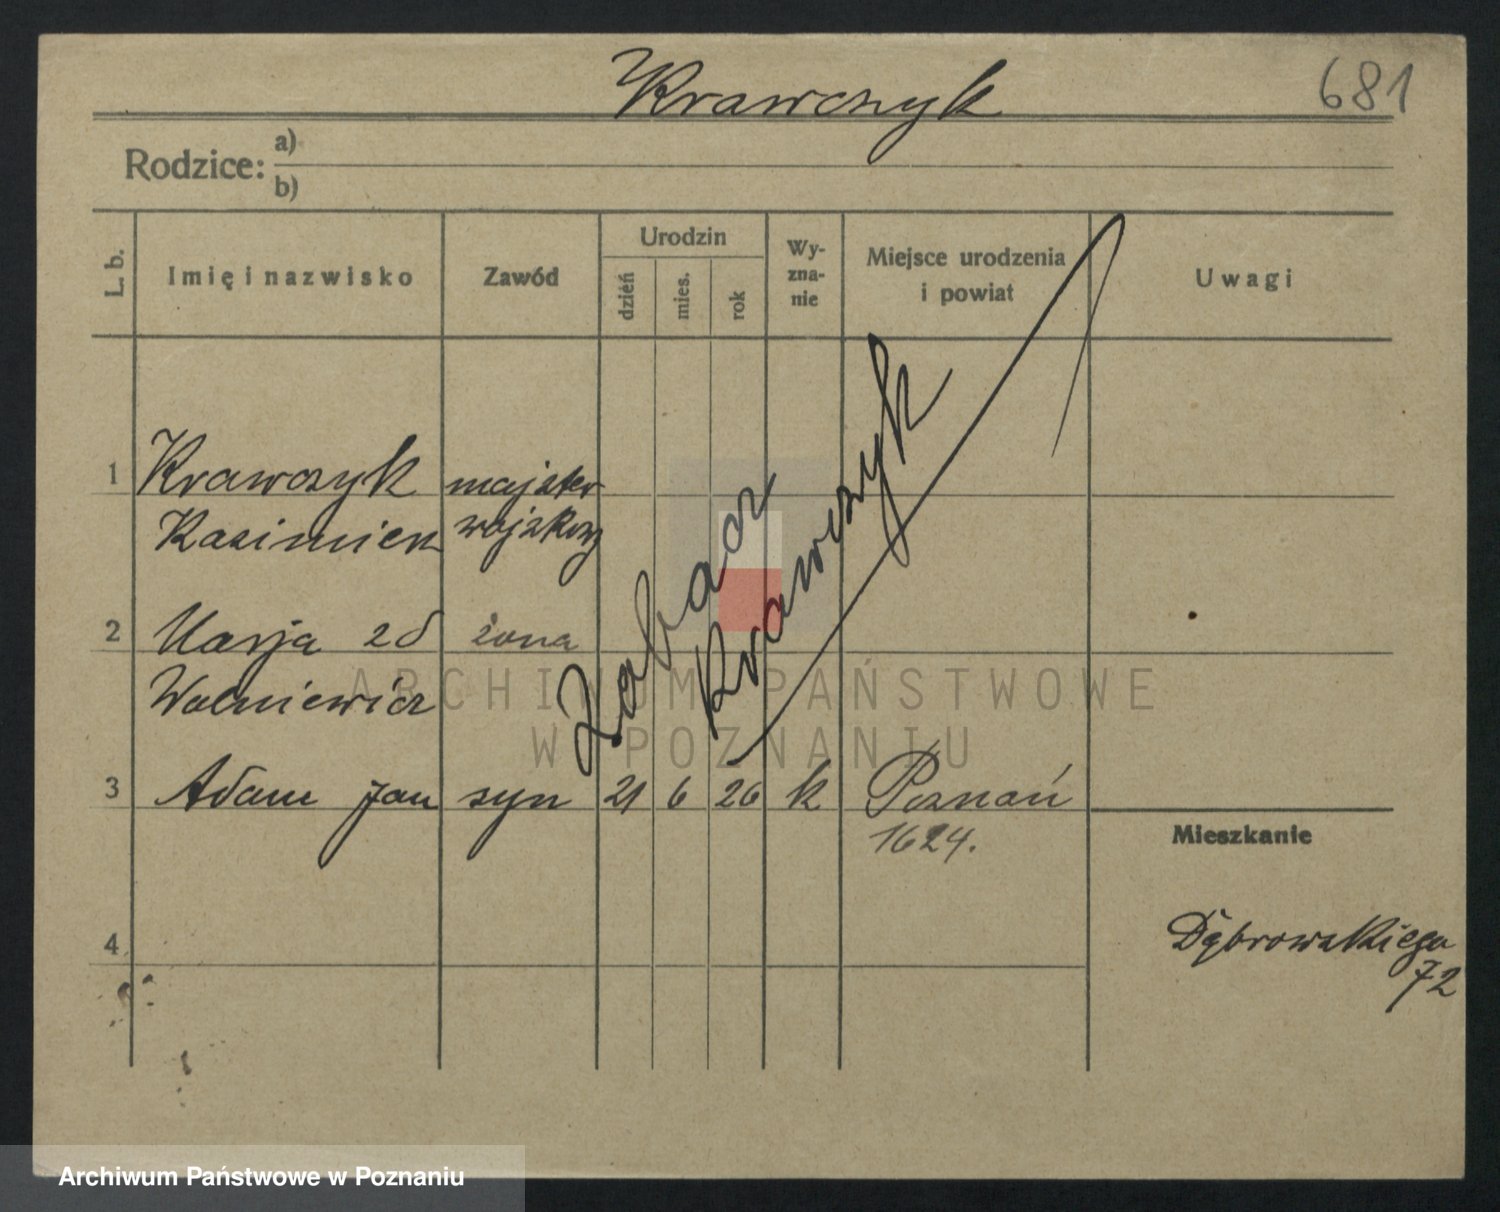 Krawczyk
681
Rodzice: a)
b)
L. b.
Imię i nazwisko
Zawód
Urodzin
dzień
mies.
rok
Wy-
zna-
nie
Miejsce urodzenia
i powiat
Uwagi
1 Krawczyk majster
Kazimierz wojskowy
Zobacz
Krawczyk
2 Marja zd żona
Wolniewicz
3 Adam Jan syn 21 6 26 k Poznań
1624.
Mieszkanie
4
Dąbrowskiego
72
ARCHIWUM PAŃSTWOWE
W POZNANIU
Archiwum Państwowe w Poznaniu